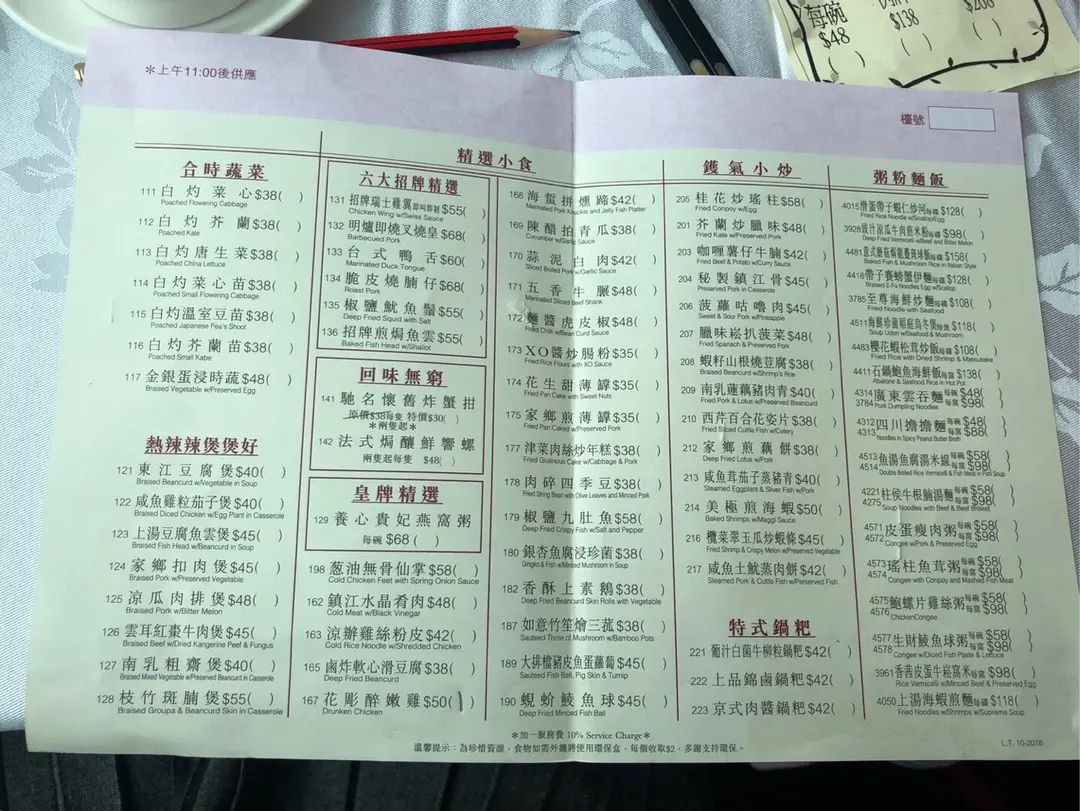 每碗
$48
$138
( )
( )
＊上午11:00後供應
檯號
合時蔬菜
111 白灼菜心$38( )
Poached Flowering Cabbage
112 白灼芥蘭$38( )
Poached Kale
113 白灼唐生菜$38( )
Poached China Lettuce
114 白灼菜心苗$38( )
Poached Small Flowering Cabbage
115 白灼溫室豆苗$38( )
Poached Japanese Pea's Shoot
116 白灼芥蘭苗$38( )
Poached Small Kabe
117 金銀蛋浸時蔬$48( )
Braised Vegetable w/Preserved Egg
熱辣辣煲煲好
121 東江豆腐煲$40( )
Braised Beancurd w/Vegetable in Soup
122 咸魚雞粒茄子煲$40( )
Braised Diced Chicken w/Egg Plant in Casserole
123 上湯豆腐魚雲煲$45( )
Braised Fish Head w/Beancurd in Soup
124 家鄉扣肉煲$45( )
Braised Pork w/Preserved Vegetable
125 涼瓜肉排煲$48( )
Braised Pork w/Bitter Melon
126 雲耳紅棗牛肉煲$45( )
Braised Beef w/Dried Kangerine Peef & Fungus
127 南乳粗齋煲$40( )
Braised Mixed Vegetable w/Preserved Beancurd in Casserole
128 枝竹斑腩煲$55( )
Braised Groupa & Beancurd Skin in Casserole
精選小食
六大招牌精選
131 招牌瑞士雞翼即叫即制$55( )
Chicken Wing w/Swiss Sauce
132 明爐即燒叉燒皇$68( )
Barbecued Pork
133 台式鴨舌$60( )
Marinated Duck Tongue
134 脆皮燒腩仔$68( )
Roast Pork
135 椒鹽魷魚鬚$55( )
Deep Fried Squid with Salt
136 招牌煎焗魚雲$55( )
Baked Fish Head w/Shallot
回味無窮
141 馳名懷舊炸蟹拑
原價$38每隻 特價$30( )
＊兩隻起＊
142 法式焗釀鮮響螺
兩隻起每隻 $48( )
皇牌精選
129 養心貴妃燕窩粥
每碗 $68( )
198 葱油無骨仙掌$58( )
Cold Chicken Feet with Spring Onion Sauce
162 鎮江水晶肴肉$48( )
Cold Meat w/Black Vinegar
163 涼辦雞絲粉皮$42( )
Cold Rice Noodle w/Shredded Chicken
165 鹵炸軟心滑豆腐$38( )
Deep Fried Beancurd
167 花彫醉嫩雞$50( )
Drunken Chicken
168 海蜇拼燻蹄$42( )
Marinated Pork Knuckle and Jelly Fish Platter
169 陳醋拍青瓜$38( )
Cucumber w/Garlic Sauce
170 蒜泥白肉$42( )
Sliced Boiled Pork w/Garlic Sauce
171 五香牛脤$48( )
Marinated Sliced Beef Shank
172 麵醬虎皮椒$48( )
Fried Chili w/Bean Curd Sauce
173 XO醬炒腸粉$35( )
Fried Rice Flours with XO Sauce
174 花生甜薄罉$35( )
Fried Pan Cake with Sweet Nuts
175 家鄉煎薄罉$35( )
Fried Pan Caked w/Preserved Pork
177 津菜肉絲炒年糕$38( )
Fried Glutinous Cake w/Cabbage & Pork
178 肉碎四季豆$38( )
Fried String Bean with Olive Leaves and Minced Pork
179 椒鹽九肚魚$58( )
Deep Fried Crispy Fish w/Salt and Pepper
180 銀杏魚腐浸珍菌$38( )
Gingko & Fish w/Minced Mushroom in Soup
182 香酥上素鵝$38( )
Deep Fried Beancurd Skin Rolls with Vegetable
187 如意竹笙燴三菰$38( )
Sauteed Three of Mushroom w/Bamboo Pots
189 大排檔豬皮魚蛋蘿蔔$45( )
Sauteed Fish Ball, Pig Skin & Turnip
190 蜆蚧鯪魚球$45( )
Deep Fried Minced Fish Ball
鑊氣小炒
205 桂花炒瑤柱$58( )
Fried Conpoy w/Egg
201 芥蘭炒臘味$48( )
Fried Kate w/Preserved Pork
203 咖喱薯仔牛腩$42( )
Fried Beef & Potato w/Curry Sauce
204 秘製鎮江骨$45( )
Preserved Pork in Casserole
206 菠蘿咕嚕肉$45( )
Sweet & Sour Pork w/Pineapple
207 臘味崧扒菠菜$48( )
Fried Spanach & Preserved Pork
208 蝦籽山根燒荳腐$38( )
Braised Beancurd w/Shrimp's Rice
209 南乳蓮藕豬肉青$40( )
Fried Pork & Lotus w/Preserved Beancurd
210 西芹百合花姿片$38( )
Fried Sliced Cuttle Fish w/Celery
212 家鄉煎藕餅$38( )
Deep Fried Lotus w/Pork
213 咸魚茸茄子蒸豬青$40( )
Steamed Eggplant & Silver Fish w/Pork
214 美極煎海蝦$50( )
Baked Shrimps w/Maggi Sauce
216 欖菜翠玉瓜炒蝦條$45( )
Fried Shrimp & Crispy Melon w/Preserved Vegetable
217 咸魚土魷蒸肉餅$42( )
Steamed Pork & Cuttle Fish w/Perserved Fish
特式鍋粑
221 葡汁白菌牛柳粒鍋粑$42( )
222 上品錦鹵鍋粑$42( )
223 京式肉醬鍋粑$42( )
粥粉麵飯
4015 滑蛋帶子蝦仁炒河每碟$128( )
Fried Rice Noodle w/Scallop/Egg
3928 豉汁涼瓜牛肉煎米粉每碟$98( )
Deep Fried Vermicelli w/Beef and Bitter Melon
4481 意式蘑菇焗龍躉黃球飯每碟$158( )
Baked Fish & Mushroom Rice in Italian Style
4418 帶子賽螃蟹伊麵每碟$128( )
Braised E-Fu Noodles Egg w/Scallop
3785 至尊海鮮炒麵每碟$108( )
Fried Noodles with Seafood
4511 海鮮珍菌稻庭烏冬煲每煲$118( )
Soup Udon w/Seafood & Mushroom
4483 櫻花蝦松茸炒飯每碟$108( )
Fried Rice with Dried Shrimp & Matsutake
4411 石鍋鮑魚海鮮飯每窩$138( )
Abalone & Seafood Rice in Hot Pot
4314 廣東雲吞麵 每碗$48( )
3784 Pork Dumpling Noodles 每窩$98( )
4312 四川擔擔麵 每碗$48( )
4313 Noodles in Spicy Peanut Butter Breth 每窩$88( )
4513 魚湯魚腐湯米線 每碗$58( )
4514 Double Boiled Rice Vermicelli & Fish Meat in Fish Soup 每窩$98( )
4221 柱侯牛根腩湯麵 每碗$58( )
4275 Soup Noodles with Beef & Beef Brisket 每窩$98( )
4571 皮蛋瘦肉粥 每碗$58( )
4572 Congee w/Pork & Preserved Egg 每窩$98( )
4573 瑤柱魚茸粥 每碗$58( )
4574 Congee with Conpoy and Mashed Fish Meat 每窩$98( )
4575 鮑螺片雞絲粥 每碗$58( )
4576 ChickenCongee 每窩$98( )
4577 生財鯪魚球粥 每碗$58( )
4578 Congee w/Diced Fish Paste & Lettuce 每窩$98( )
3961 香茜皮蛋牛崧窩米每窩$98( )
Rice Vermicelli w/Minced Beef & Preserved Egg
4050 上湯海蝦煎麵每碟$118( )
Fried Noodles w/Shrimps w/Supreme Soup
＊加一服務費 10% Service Charge＊
溫馨提示：為珍惜資源，食物如需外攜將使用環保盒，每個收取$2，多謝支持環保。
L.T. 10-2018